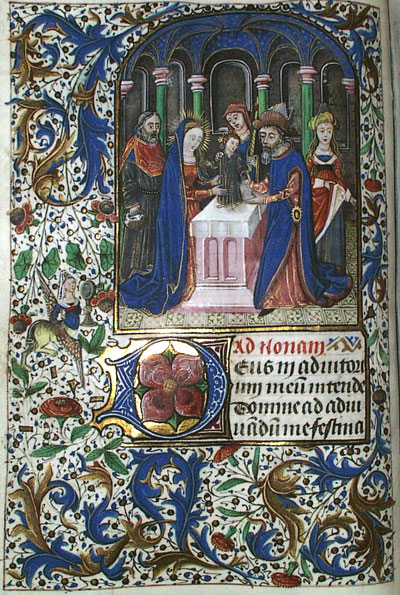 Ad Nonam
Deus in adiutori
um meum intende
Domine ad adiu
uandum me festina